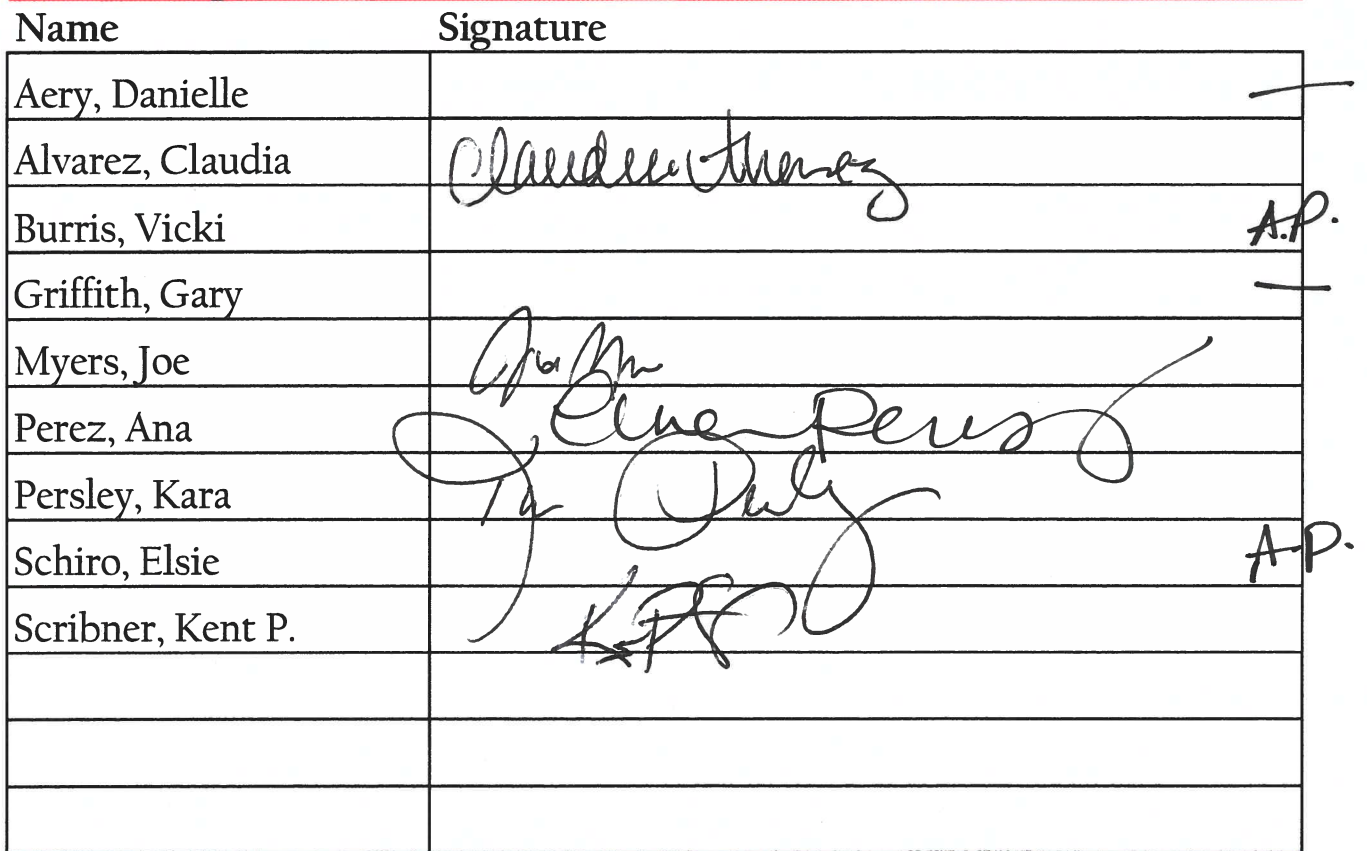 Name Signature
Aery, Danielle —
Alvarez, Claudia Claudia Alvarez
Burris, Vicki A.P.
Griffith, Gary —
Myers, Joe Joe
Perez, Ana Ana Perez
Persley, Kara
Schiro, Elsie A.P.
Scribner, Kent P.